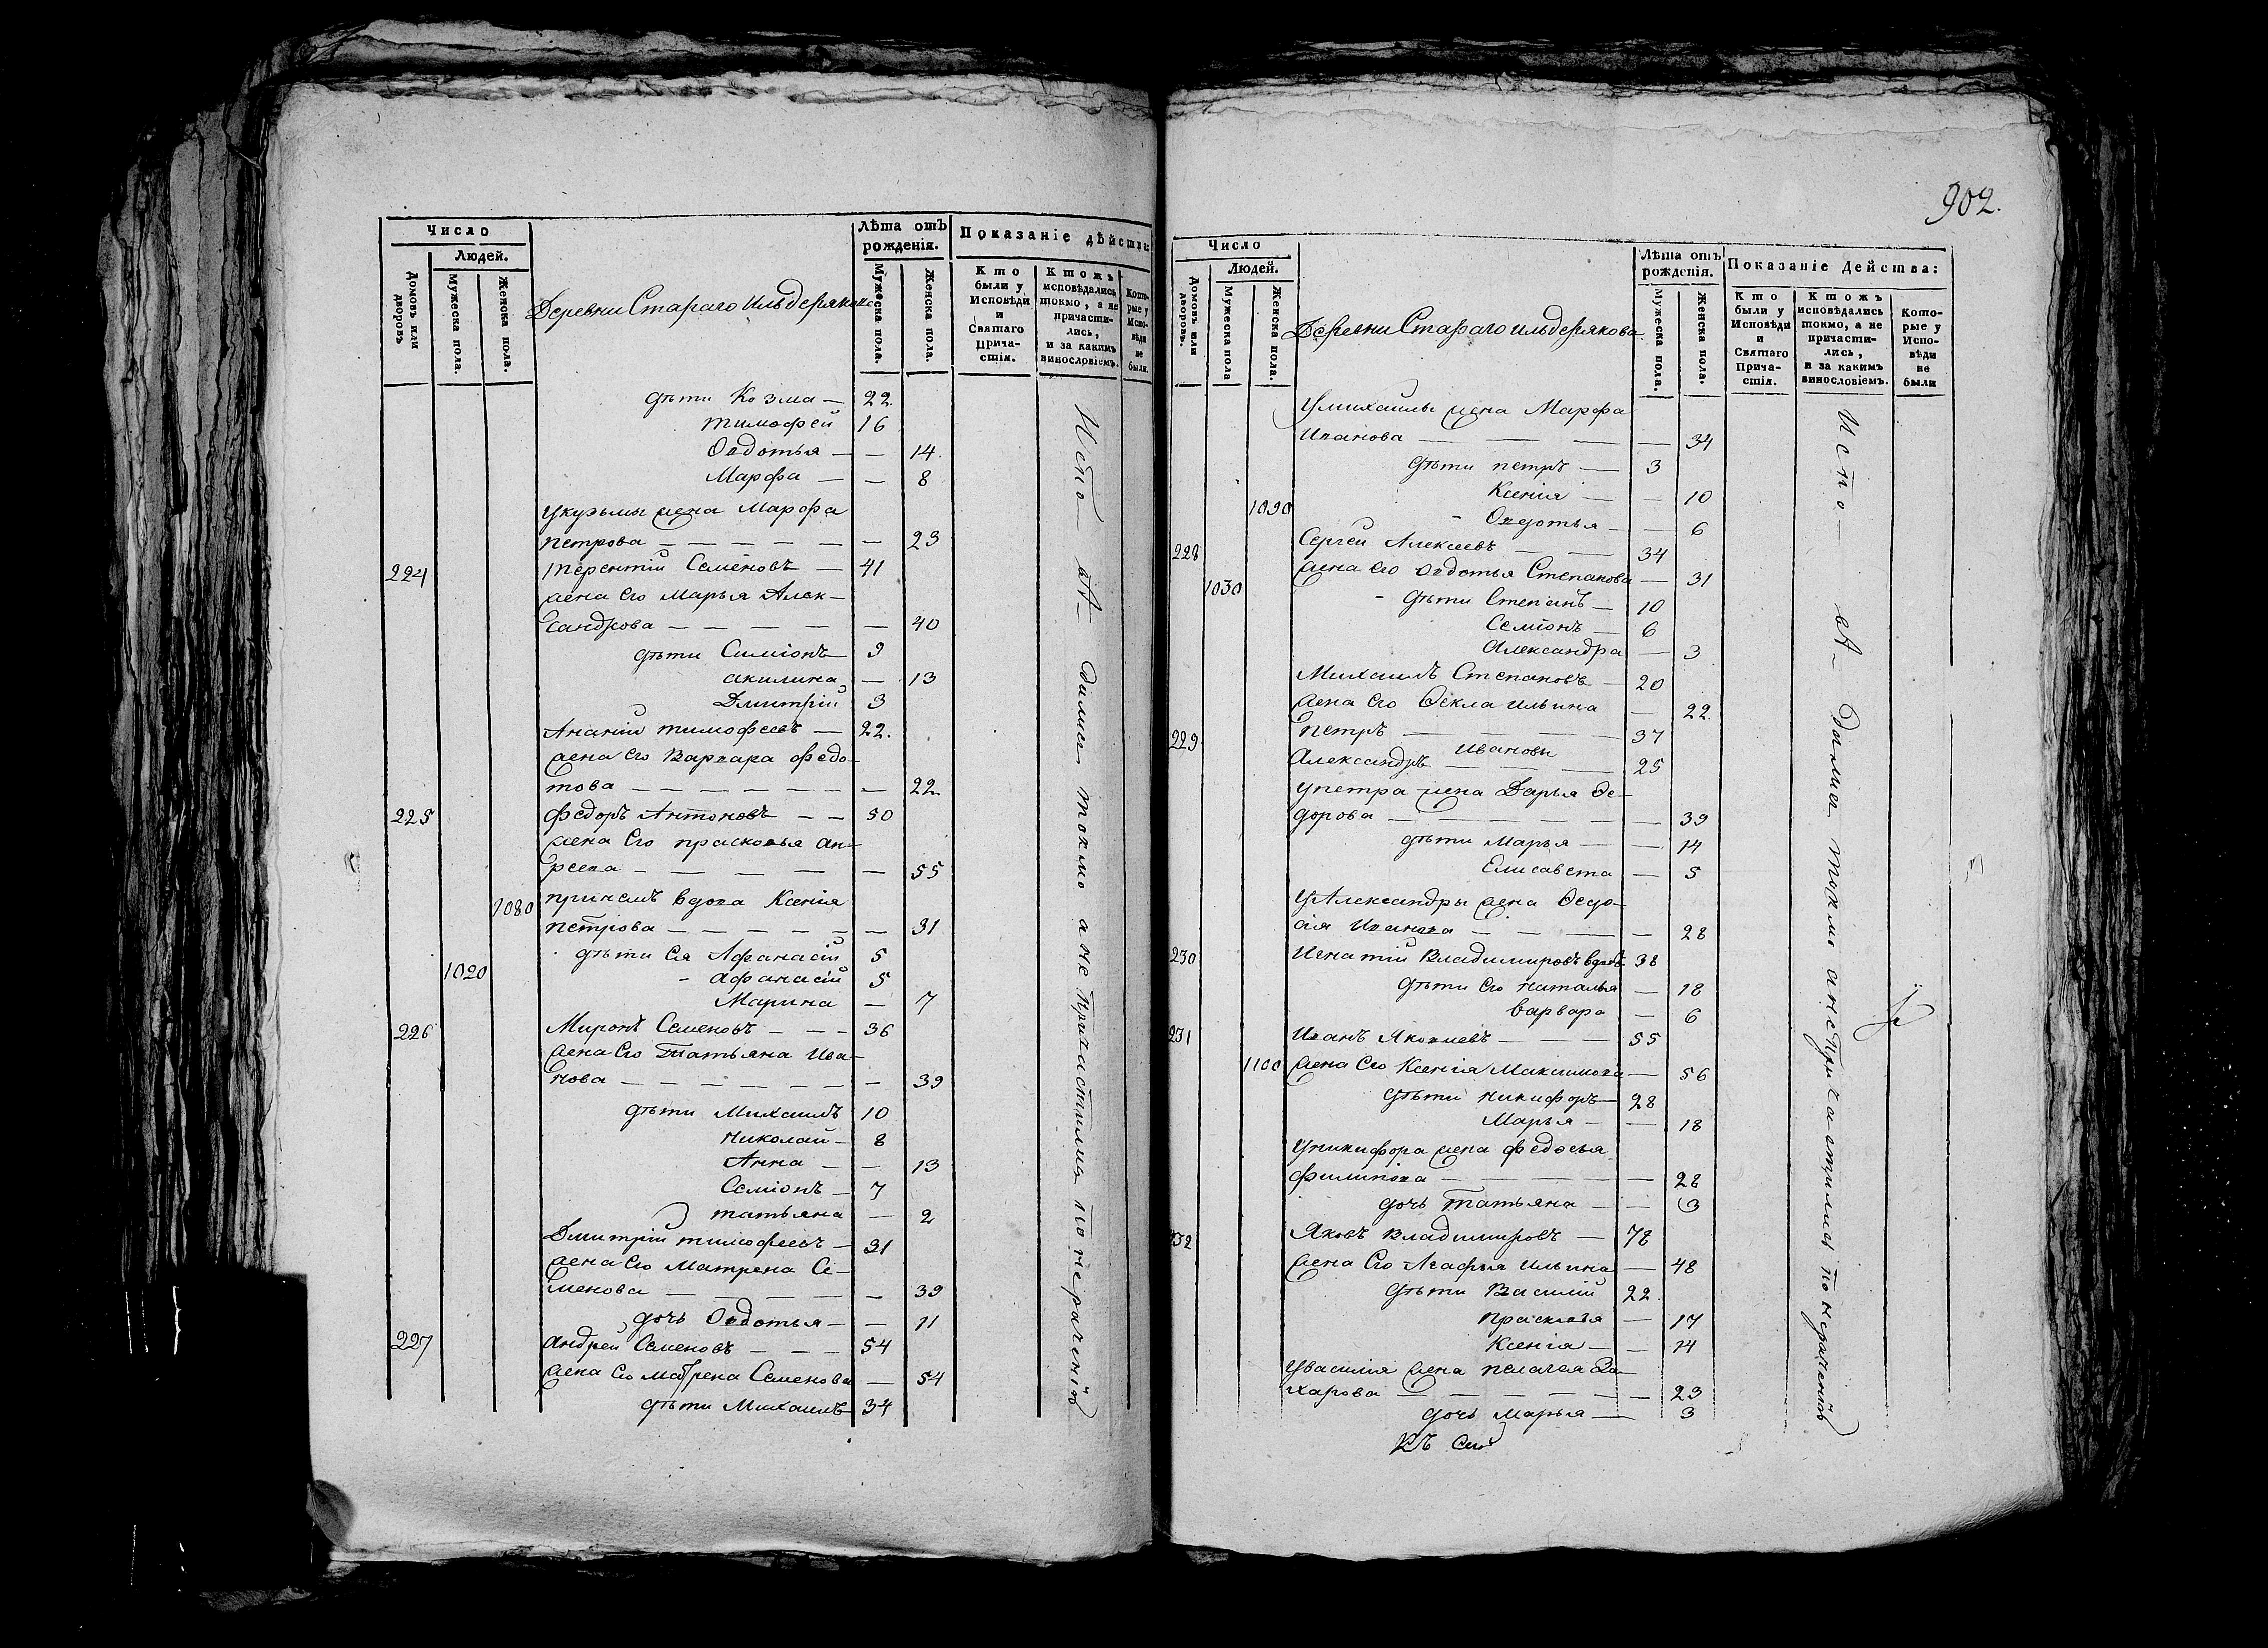 Число
Людей.
Домовъ или дворовъ
Мужеска пола.
Женска пола.
Деревни Стараго Ильдерякова
Лѣта отъ рожденія.
Мужеска пола.
Женска пола.
Показаніе дѣйства:
Кто были у Исповѣди и Святаго Причастія.
Ктожъ исповѣдались токмо, а не причастились, и за какимъ винословіемъ.
Которые у Исповѣди не были.
дѣти Козма — 22.
тимофей 16
Овдотья — — 14.
Марфа — — 8
укузьмы жена Марфа
петрова — — — — — — 23
224 терентій Семеновъ — 41
жена его Марья Алек-
сандрова — — — — — 40
дѣти Симіонъ 9
акилина — 13
Дмитрій 3
Ананій тимофеевъ — 22.
жена его Варвара федо-
това — — — — — — — 22.
225 федоръ Антоновъ — — 50
жена его прасковья ан-
реева — — — — — 55
1080 принемъ вдова Ксенія
петрова — — — — — — 31
дѣти ея Афанасій 5
1020 - афанасій 5
Марина — 7
226 Миронъ Семеновъ — — — 36
жена его Татьяна Ива-
нова — — — — — — — 39
дѣти Михаилъ 10
николай — 8
Анна — — 13
Семіонъ — 7
татьяна — 2
Дмитрій тимофеевъ — 31
жена его Матрена Се-
менова — — — — — 39
дочь Овдотья — — 11
227 андрей Семеновъ — — — 54
жена его матрена Семенова — 54
дѣти Михаилъ 34
Испо- вѣ- дались токмо а не причастились по нераченію
902.
Число
Людей.
Домовъ или дворовъ.
Мужеска пола
Женска пола.
Деревни Стараго ильдерякова
Лѣта отъ рожденія.
Мужеска пола.
Женска пола.
Показаніе Действа:
Кто были у Исповѣди и Святаго Причастія.
Ктожъ исповѣдались токмо, а не причастились, и за какимъ винословіемъ.
Которые у Исповѣди не были
умихаилы жена Марфа
Иванова — — — — 34
дѣти петръ — 3
Ксенія — — 10
1090 - Овдотья — — 6
228 Сергей Алексеевъ — — 34
жена его овдотья Степанова — 31
1030 - дѣти Степанъ — 10
Семіонъ — 6
Александра — 3
Михаилъ Степановъ — 20
жена его Ѳекла ильина — 22.
229 петръ — — — — 37
Ивановы
Александръ — — — 25
упетра жена Дарья Ѳе-
дорова — — — — — — 39
дѣти Марья — — 14
Елисавета — 5
уАлександры жена Ѳедо-
сія Иванова — — — — 28
230 Игнатій Владимировъ вдовъ 38
дѣти его наталья — 18
варвара — 6
231 Иванъ Яковлевъ — — — 55
1100 жена его Ксенія Максимова — 56
дѣти никифоръ — 28
Марья — — 18
уникифора жена федосья
филипова — — — — — 28
дочь татьяна — — 3
232 Яковъ Владимировъ — 78
жена его Агафья ильина — 48
дѣти Василій 22.
прасковья — 17
Ксенія — — 14
увасилія жена пелагея За-
харова — — — — — — 23
дочь марья — 3
Къ сей
Испо — вѣ- дались токмо а не причастились по нераченію